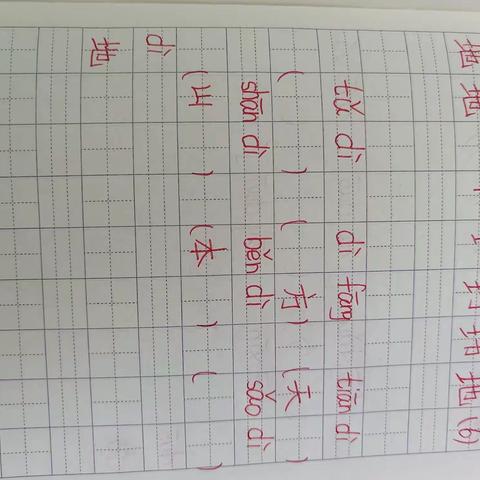 地 地 地 (6)
tǔ dì dì fāng tiān dì
( ) ( 方) (天 )
shān dì běn dì sǎo dì
(山 ) (本 ) ( )
dì
地